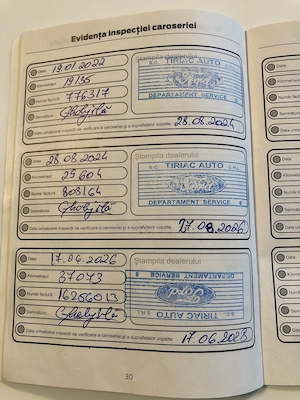 Evidența inspecției caroseriei
Data: 19.01.2022
Kilometrajul: 14135
Număr factură: 776317
Semnătura:
Ștampila dealerului
S.C. TIRIAC AUTO S.R.L.
Ford
DEPARTAMENT SERVICE 8
Data următoarei inspecții de verificare a caroseriei și a suprafețelor vopsite: 28.08.2024
Data: 28.08.2024
Kilometrajul: 25604
Număr factură: 808164
Semnătura:
Ștampila dealerului
S.C. TIRIAC AUTO S.R.L.
Ford
DEPARTAMENT SERVICE 8
Data următoarei inspecții de verificare a caroseriei și a suprafețelor vopsite: 17.08.2026
Data: 17.06.2026
Kilometrajul: 37073
Număr factură: 16256013
Semnătura:
Ștampila dealerului
DEPARTAMENT SERVICE 8
Ford
S.C. TIRIAC AUTO S.R.L.
Data următoarei inspecții de verificare a caroseriei și a suprafețelor vopsite: 17.06.2028
30